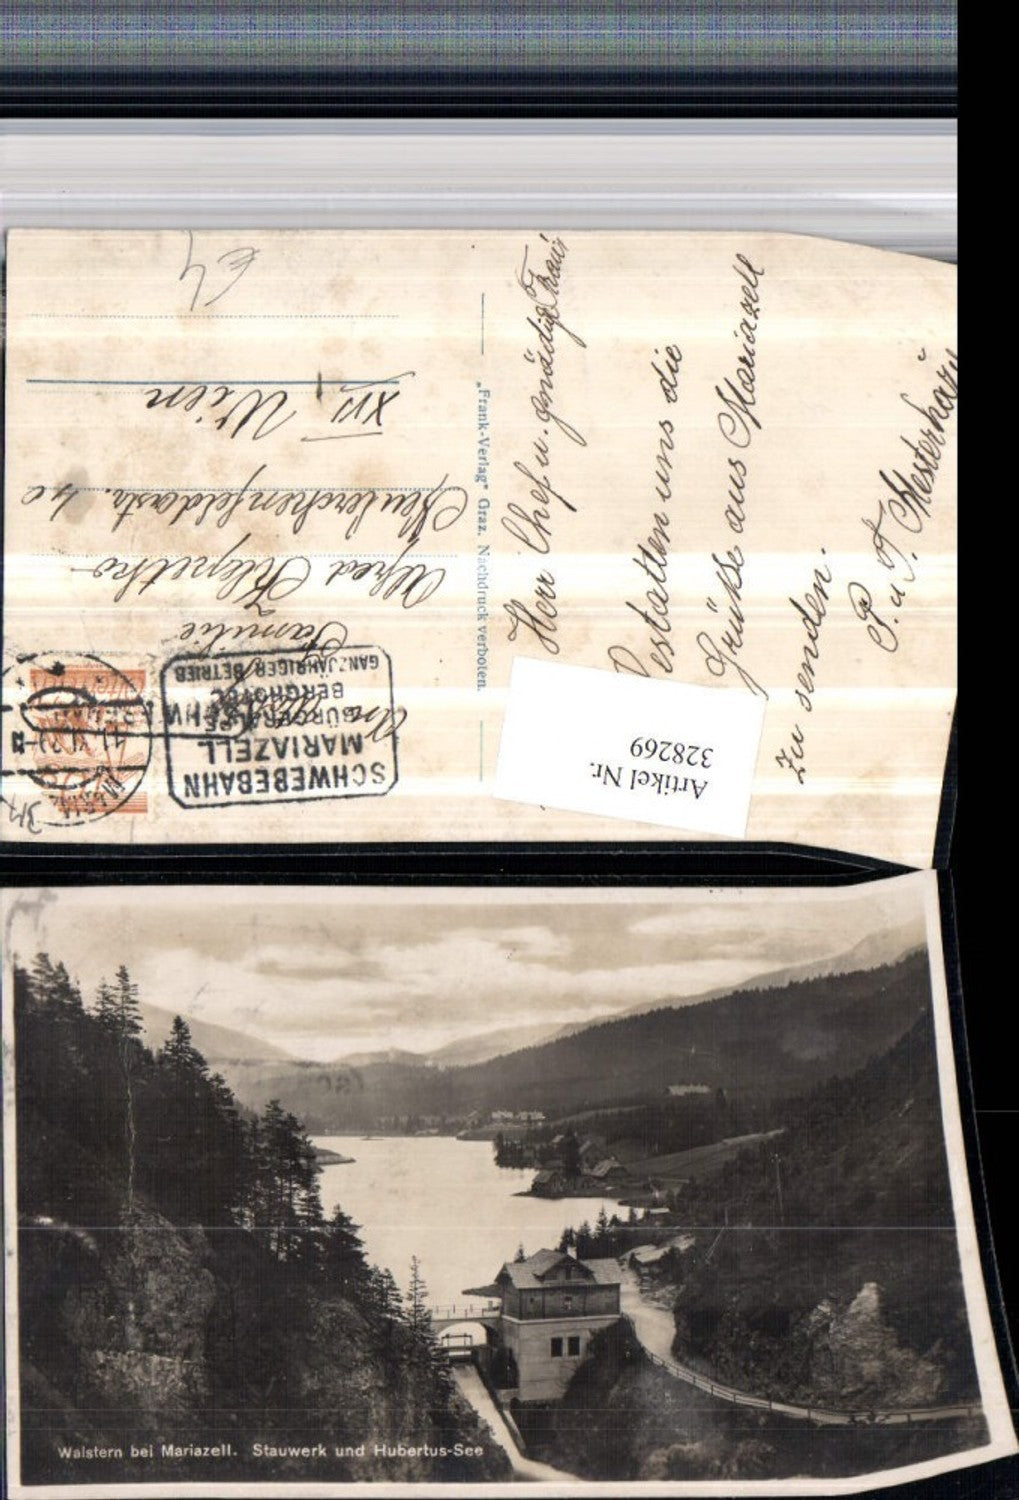 Herr Chef u. gnädige Frau
Gestatten uns die
Grüße aus Mariazell
zu senden.
P. u. F.
„Frank-Verlag" Graz. Nachdruck verboten.
SCHWEBEBAHN
MARIAZELL
BÜRGERALPE
BERGHOTEL
GANZJÄHRIGER BETRIEB
An
Familie
Alfred
Neulerchenfelderstr. 40
XVI, Wien
Artikel Nr.
328269
Walstern bei Mariazell. Stauwerk und Hubertus-See